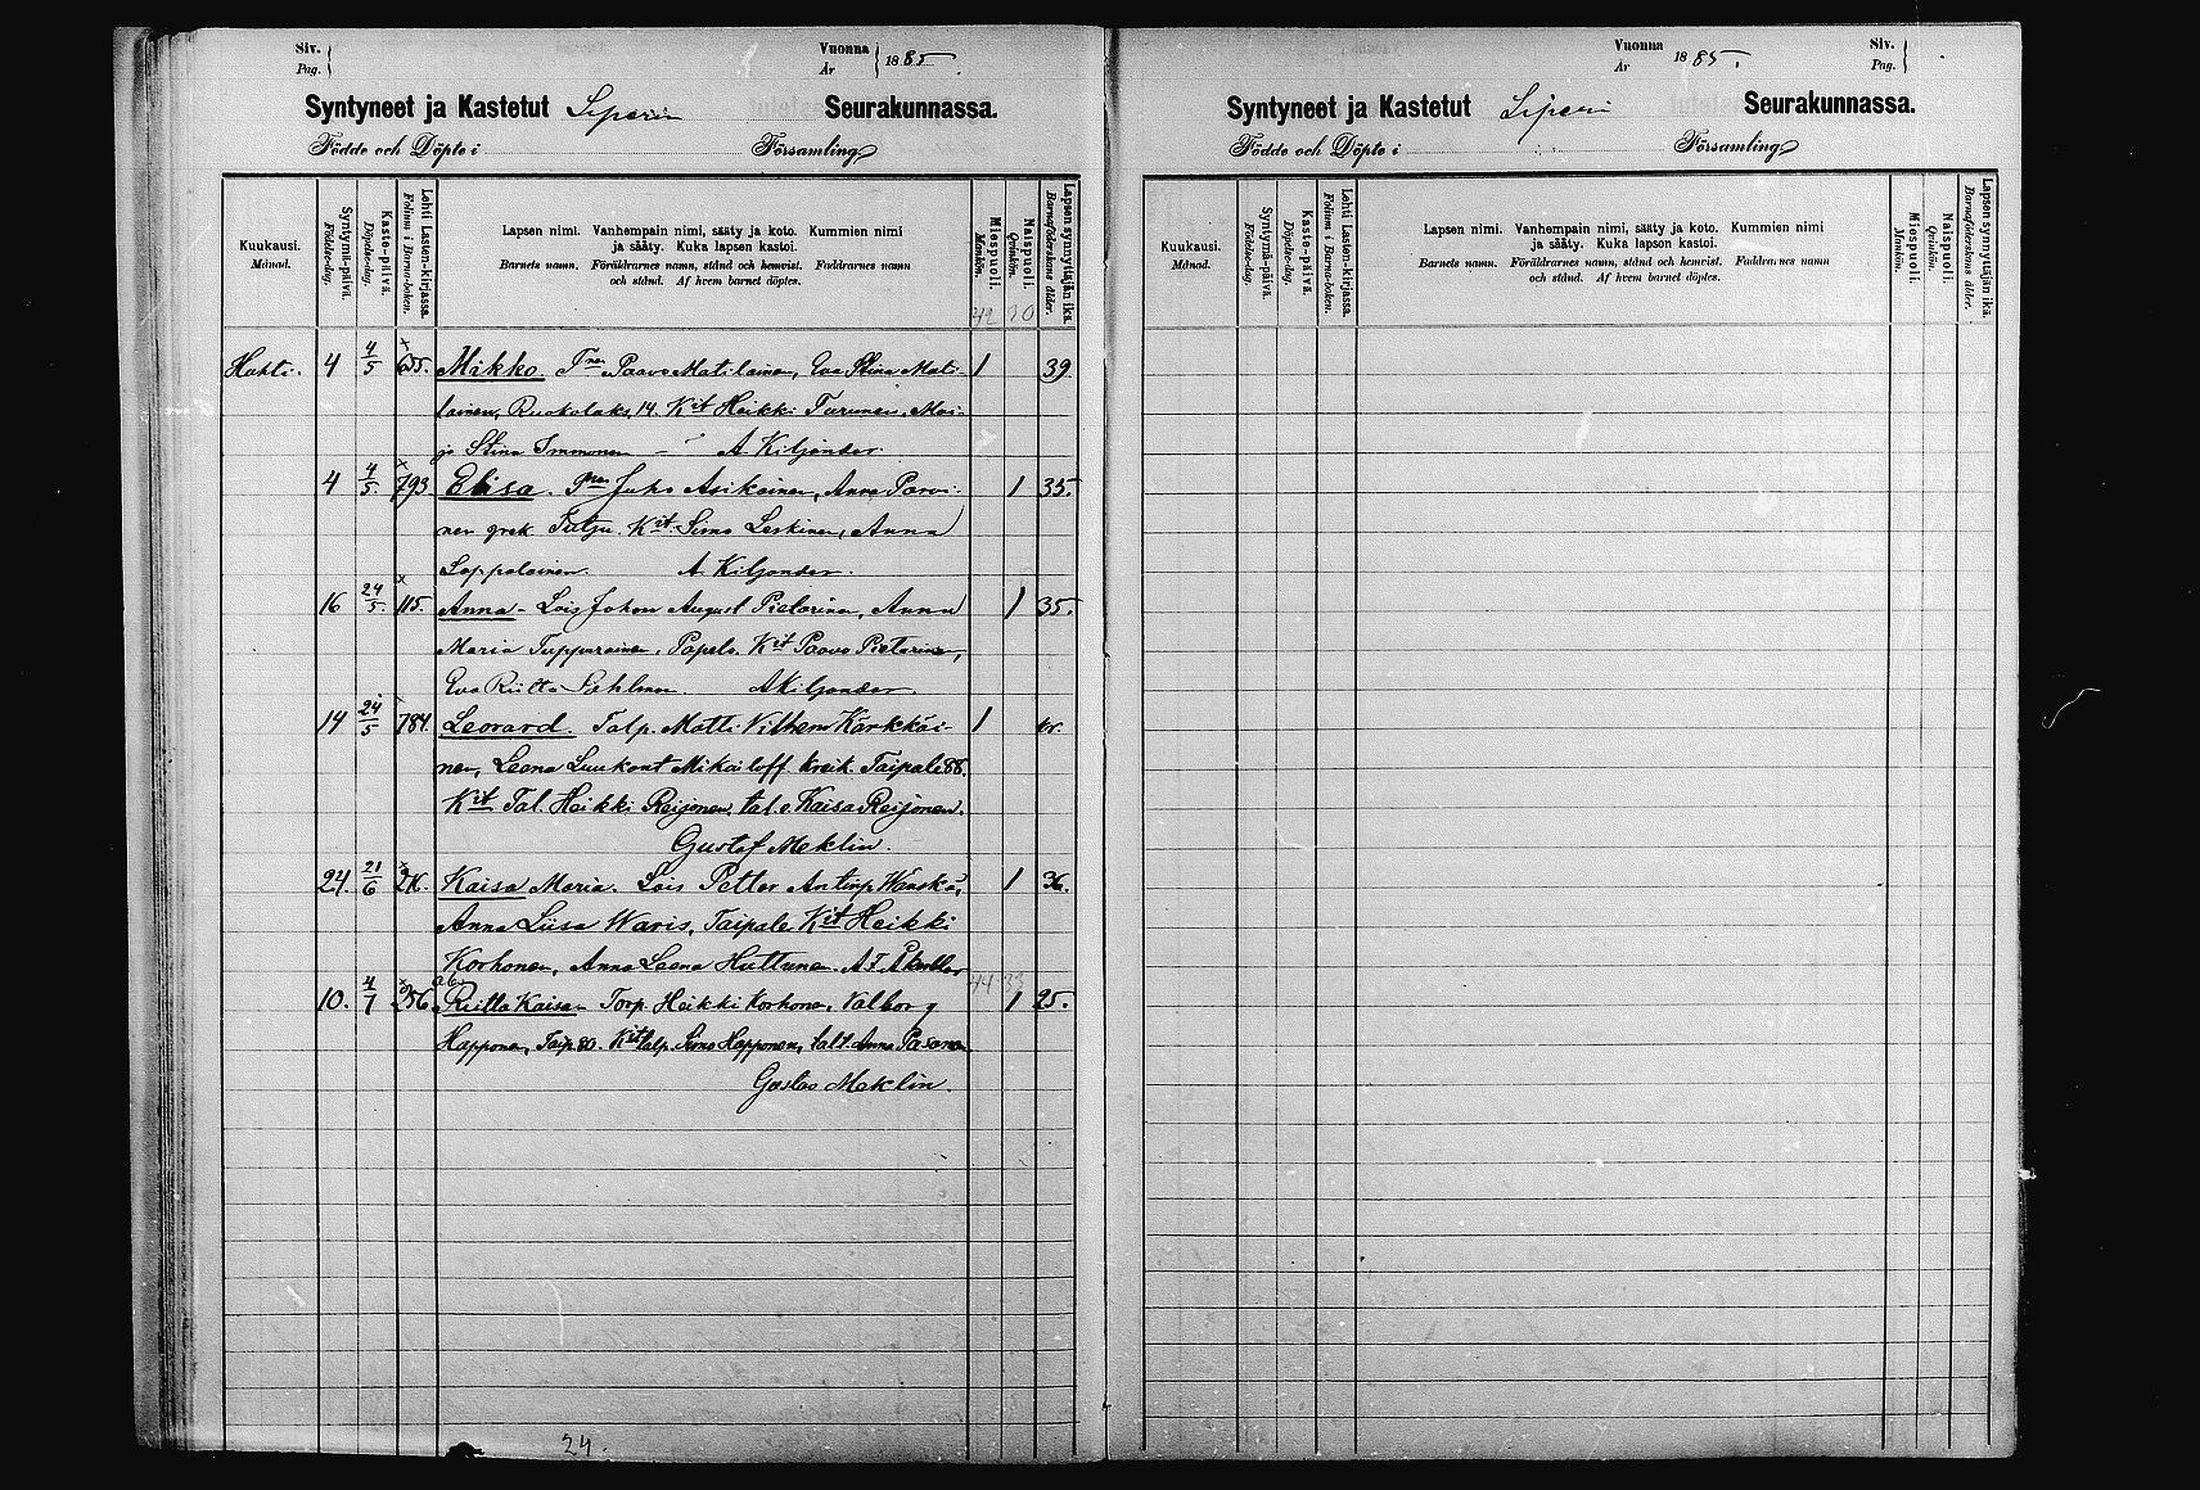 Siv.
Pag.
Vuonna 1885.
År
Syntyneet ja Kastetut Liperin Seurakunnassa.
Födde och Döpte i Församling
Kuukausi. Månad.
Syntymä-päivä. Födelse-dag.
Kaste-päivä. Döpelse-dag.
Lehti Lasten-kirjassa. Folium i Barna-boken.
Lapsen nimi. Vanhempain nimi, sääty ja koto. Kummien nimi
ja sääty. Kuka lapsen kastoi.
Barnets namn. Föräldrarnes namn, stånd och hemvist. Faddrarnes namn
och stånd. Af hvem barnet döptes.
Miespuoli. Mankön.
Naispuoli. Qvinkön.
Lapsen synnyttäjän ikä. Barnaföderskans ålder.
42 30
Huhti. 4 4/5 655. Mikko. Tnen Paavo Matilainen, Eva Stina Mati- 1 39.
lainen, Ruokolaks, 14. Kit Heikki Turunen, Mai-
ja Stina Immonen – A. Kiljander.
4 4/5. 793. Elisa. Juho Asikainen, Anna Parvi- 1 35.
nen grek. Kit. Simo Leskinen, Anna
Lappalainen. A. Kiljander.
16 24/5. 115. Anna – Lois Johan August Pietarinen, Anna 1 35.
Maria Tuppurainen, Papelo. Kit Paavo Pietarinen,
Eva Riitta Sahlman. A Kiljander.
14 24/5 784. Leonard. Talp. Matti Vilhem Kärkkäi- 1 kr.
nen, Leena Luukont Mikailoff. kreik. Taipale 88.
Kit Tal. Heikki Reijonen, tal. e. Kaisa Reijonen.
Gustaf Meklin.
24. 21/6 Kaisa Maria. Lois Petter Antinp. Wänskä, 1 36.
Anna Liisa Waris, Taipale Kit Heikki
Korhonen, Anna Leena Huttunen. A F Åkerblom
44 33
10. 4/7 256 Riitta Kaisa – Torp. Heikki Korhonen, Valborg 1 25.
Happonen, Taip. 80. Kit talp. Simo Happonen, talt. Anna Pasanen
Gustav Meklin.
24.
Vuonna 1885.
År
Siv.
Pag.
Syntyneet ja Kastetut Liperi Seurakunnassa.
Födde och Döpte i Församling
Kuukausi. Månad.
Syntymä-päivä. Födelse-dag.
Kaste-päivä. Döpelse-dag.
Lehti Lasten-kirjassa. Folium i Barna-boken.
Lapsen nimi. Vanhempain nimi, sääty ja koto. Kummien nimi
ja sääty. Kuka lapson kastoi.
Barnets namn. Föräldrarnes namn, stånd och hemvist. Faddrarnes namn
och stånd. Af hvem barnet döptes.
Miespuoli. Mankön.
Naispuoli. Qvinkön.
Lapsen synnyttäjän ikä. Barnaföderskans ålder.